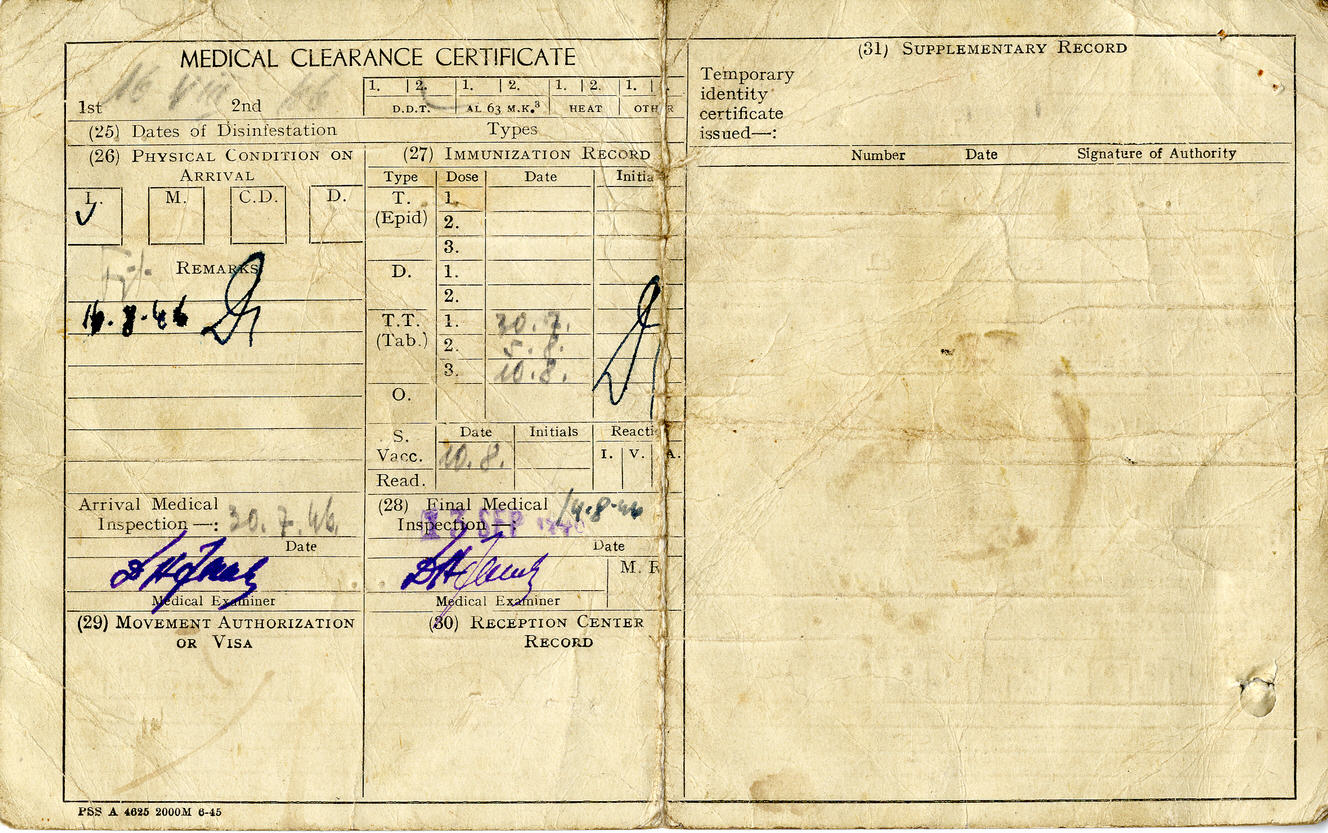 MEDICAL CLEARANCE CERTIFICATE
1st 16 VIII 46 2nd
1. 2. 1. 2. 1. 2. 1.
D.D.T. AL 63 M.K.³ HEAT OTHER
(25) Dates of Disinfestation Types
(26) PHYSICAL CONDITION ON
ARRIVAL
L. M. C.D. D.
REMARKS
16.8.46
(27) IMMUNIZATION RECORD
Type Dose Date Initia
T. 1.
(Epid) 2.
3.
D. 1.
2.
T.T. 1. 30.7.
(Tab.) 2. 5.8.
3. 10.8.
O.
S. Date Initials Reacti
Vacc. 10.8. I. V. A.
Read.
Arrival Medical
Inspection—: 30.7.46.
Date
Medical Examiner
(28) Final Medical 14.8.46
Inspection—: 13 SEP 1946
Date
M. R
Medical Examiner
(29) MOVEMENT AUTHORIZATION
OR VISA
(30) RECEPTION CENTER
RECORD
PSS A 4625 2000M 6-45
(31) SUPPLEMENTARY RECORD
Temporary
identity
certificate
issued—:
Number Date Signature of Authority